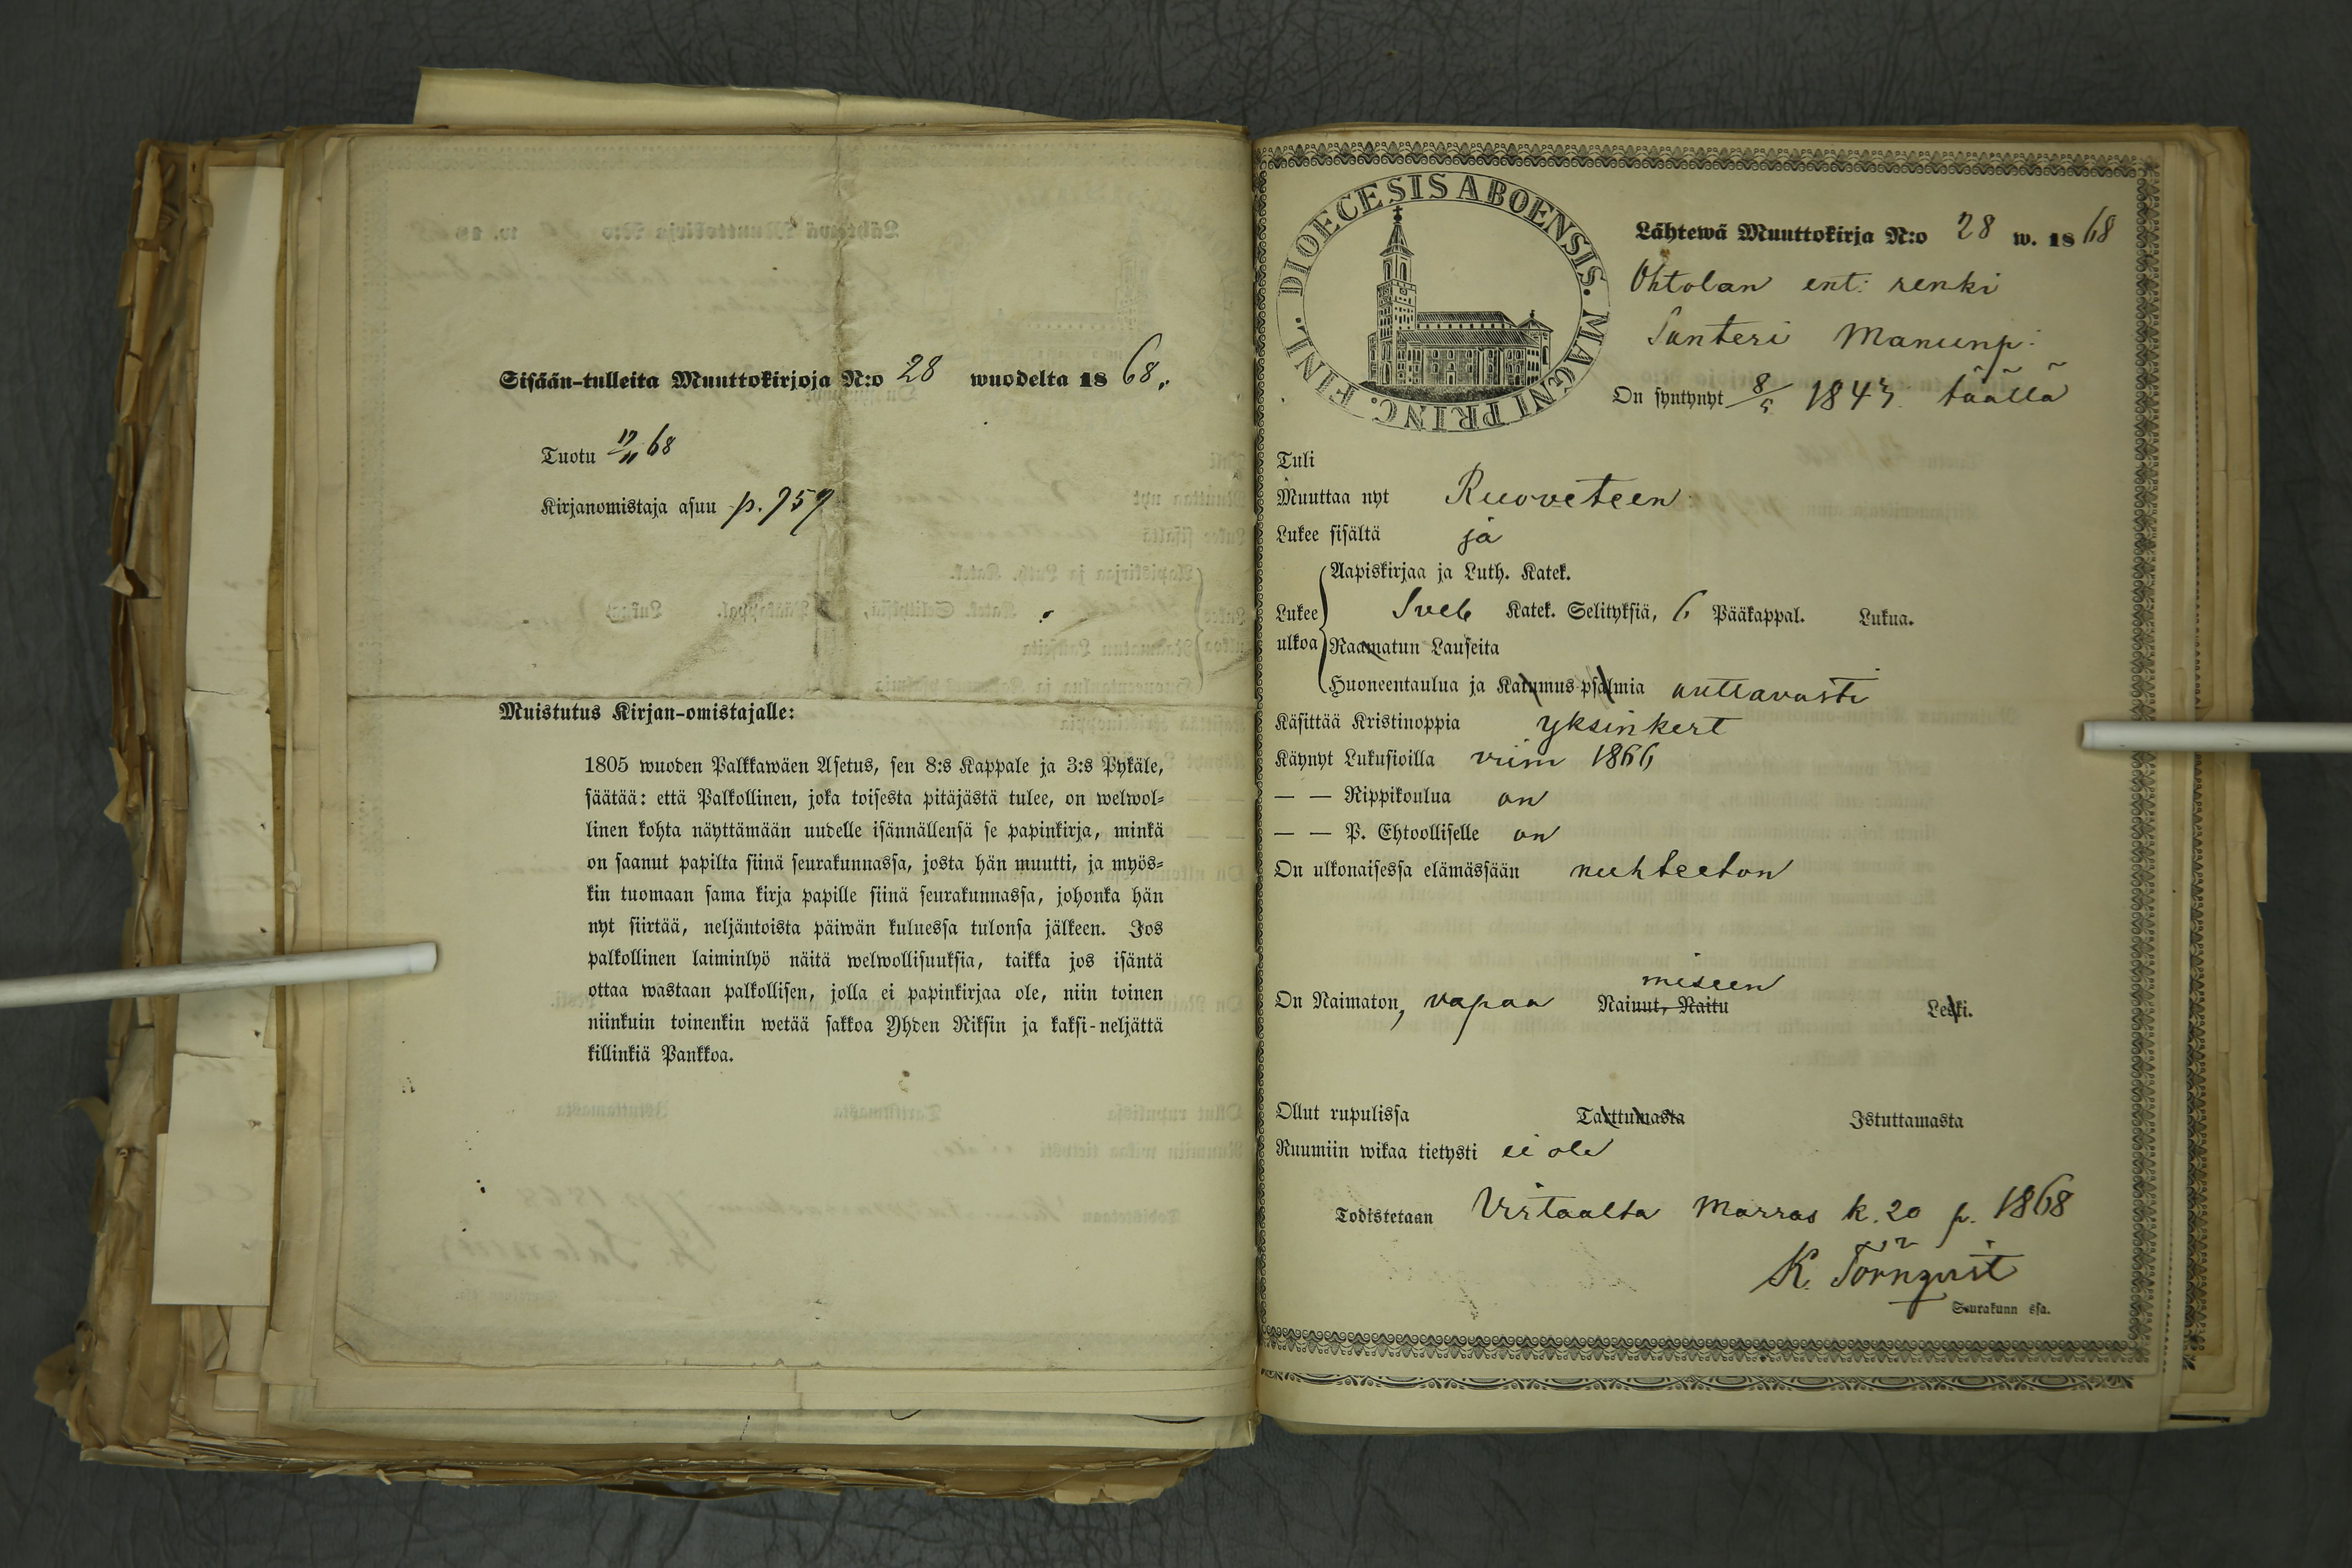 Sisään-tulleita Muuttokirjoja N:o 28 wuodelta 1868.
Tuotu 17/11 68
Kirjanomistaja asuu p. 757
Muistutus Kirjan-omistajalle:
1805 wuoden Palkkawäen Asetus, sen 8:s Kappale ja 3:s Pykäle,
säätää: että Palkollinen, joka toisesta pitäjästä tulee, on welwol-
linen kohta näyttämään uudelle isännällensä se papinkirja, minkä
on saanut papilta siinä seurakunnassa, josta hän muutti, ja myös-
kin tuomaan sama kirja papille siinä seurakunnassa, johonka hän
nyt siirtää, neljäntoista päiwän kuluessa tulonsa jälkeen. Jos
palkollinen laiminlyö näitä welwollisuuksia, taikka jos isäntä
ottaa wastaan palkollisen, jolla ei papinkirjaa ole, niin toinen
niinkuin toinenkin wetää sakkoa Yhden Riksin ja kaksi-neljättä
killinkiä Pankkoa.
DIOECESIS ABOENSIS. MAGNI PRINC. FINL.
Lähtewä Muuttokirja N:o 28 w. 1868
Ohtolan ent: renki
Santeri Manunp:
On syntynyt 8/5 1843 täällä
Tuli
Muuttaa nyt Ruoveteen
Lukee sisältä ja
Lukee ulkoa
Aapiskirjaa ja Luth. Katek.
Sveb Katek. Selityksiä, 6 Pääkappal. Lukua.
Raamatun Lauseita
Huoneentaulua ja Katumus-psalmia auttavasti
Käsittää Kristinoppia yksinkert
Käynyt Lukusioilla viim 1866
— — Rippikoulua on
— — P. Ehtoolliselle on
On ulkonaisessa elämässään nuhteeton
miseen
On Naimaton, vapaa Nainut, Naitu Leski.
Ollut rupulissa Tarttumasta Istuttamasta
Ruumiin wikaa tietysti ei ole
Todistetaan Virtaalta Marras k. 20 p. 1868
K. Törnqvist
Seurakunn ssa.